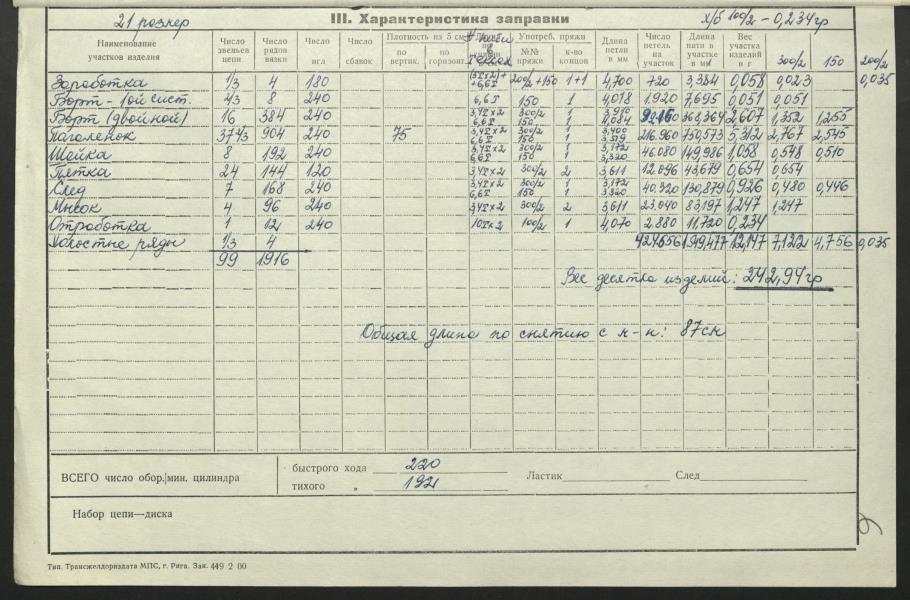 21 размер III. Характеристика заправки х/б 100/2 - 0,234 гр
Наименование участков изделия Число звеньев цепи Число рядов вязки Число игл Число сбавок Плотность на 5 см по вертик. по горизонт. Употреб. пряжи №№ пряжи к-во концов Длина петли в мм Число петель на участок Длина нити в участке в мм Вес участка изделия в г 300/2 150 200/2
Заработка 1/3 4 180 200/2+150 1+1 4,700 720 3,384 0,058 0,023 0,035
Борт - 1ой сист. 4/3 8 240 6,6 I 150 1 4,018 1.920 7,695 0,051 0,051
Борт (двойной) 16 384 240 3,4I x 2 300/2 1 3,910 2,607 1,352 1,255
6,6 I 150 1 4,084
Паголенок 37 4/3 904 240 75 3,4I x 2 300/2 1 3,400 216.960 750,573 5,312 2,767 2,545
6,6 I 150 1
Шейка 8 192 240 3,4I x 2 300/2 1 3,172 46.080 149,986 1,058 0,548 0,510
6,6 I 150 1 3,320
Пятка 24 144 120 3,4I x 2 300/2 2 3,611 12.096 43,679 0,654 0,654
След 7 168 240 3,4I x 2 300/2 1 3,172 40.320 130,879 0,926 0,480 0,446
6,6 I 150 1 3,320
Мысок 4 96 240 3,4I x 2 300/2 2 3,611 23.040 83,197 1,247 1,247
Отработка 1 12 240 10I x 2 100/2 1 4,070 2.880 11,720 0,234
Холостые ряды 1/3 4 12,147 7,122 4,756 0,035
99 1916
Вес десятка изделий: 242,94 гр
Общая длина по снятию с м-н: 87 см
ВСЕГО число обор./мин. цилиндра быстрого хода 220
тихого „ 192 Ластик След
Набор цепи—диска
Тип. Трансжелдориздата МПС, г. Рига. Зак. 449 2 00